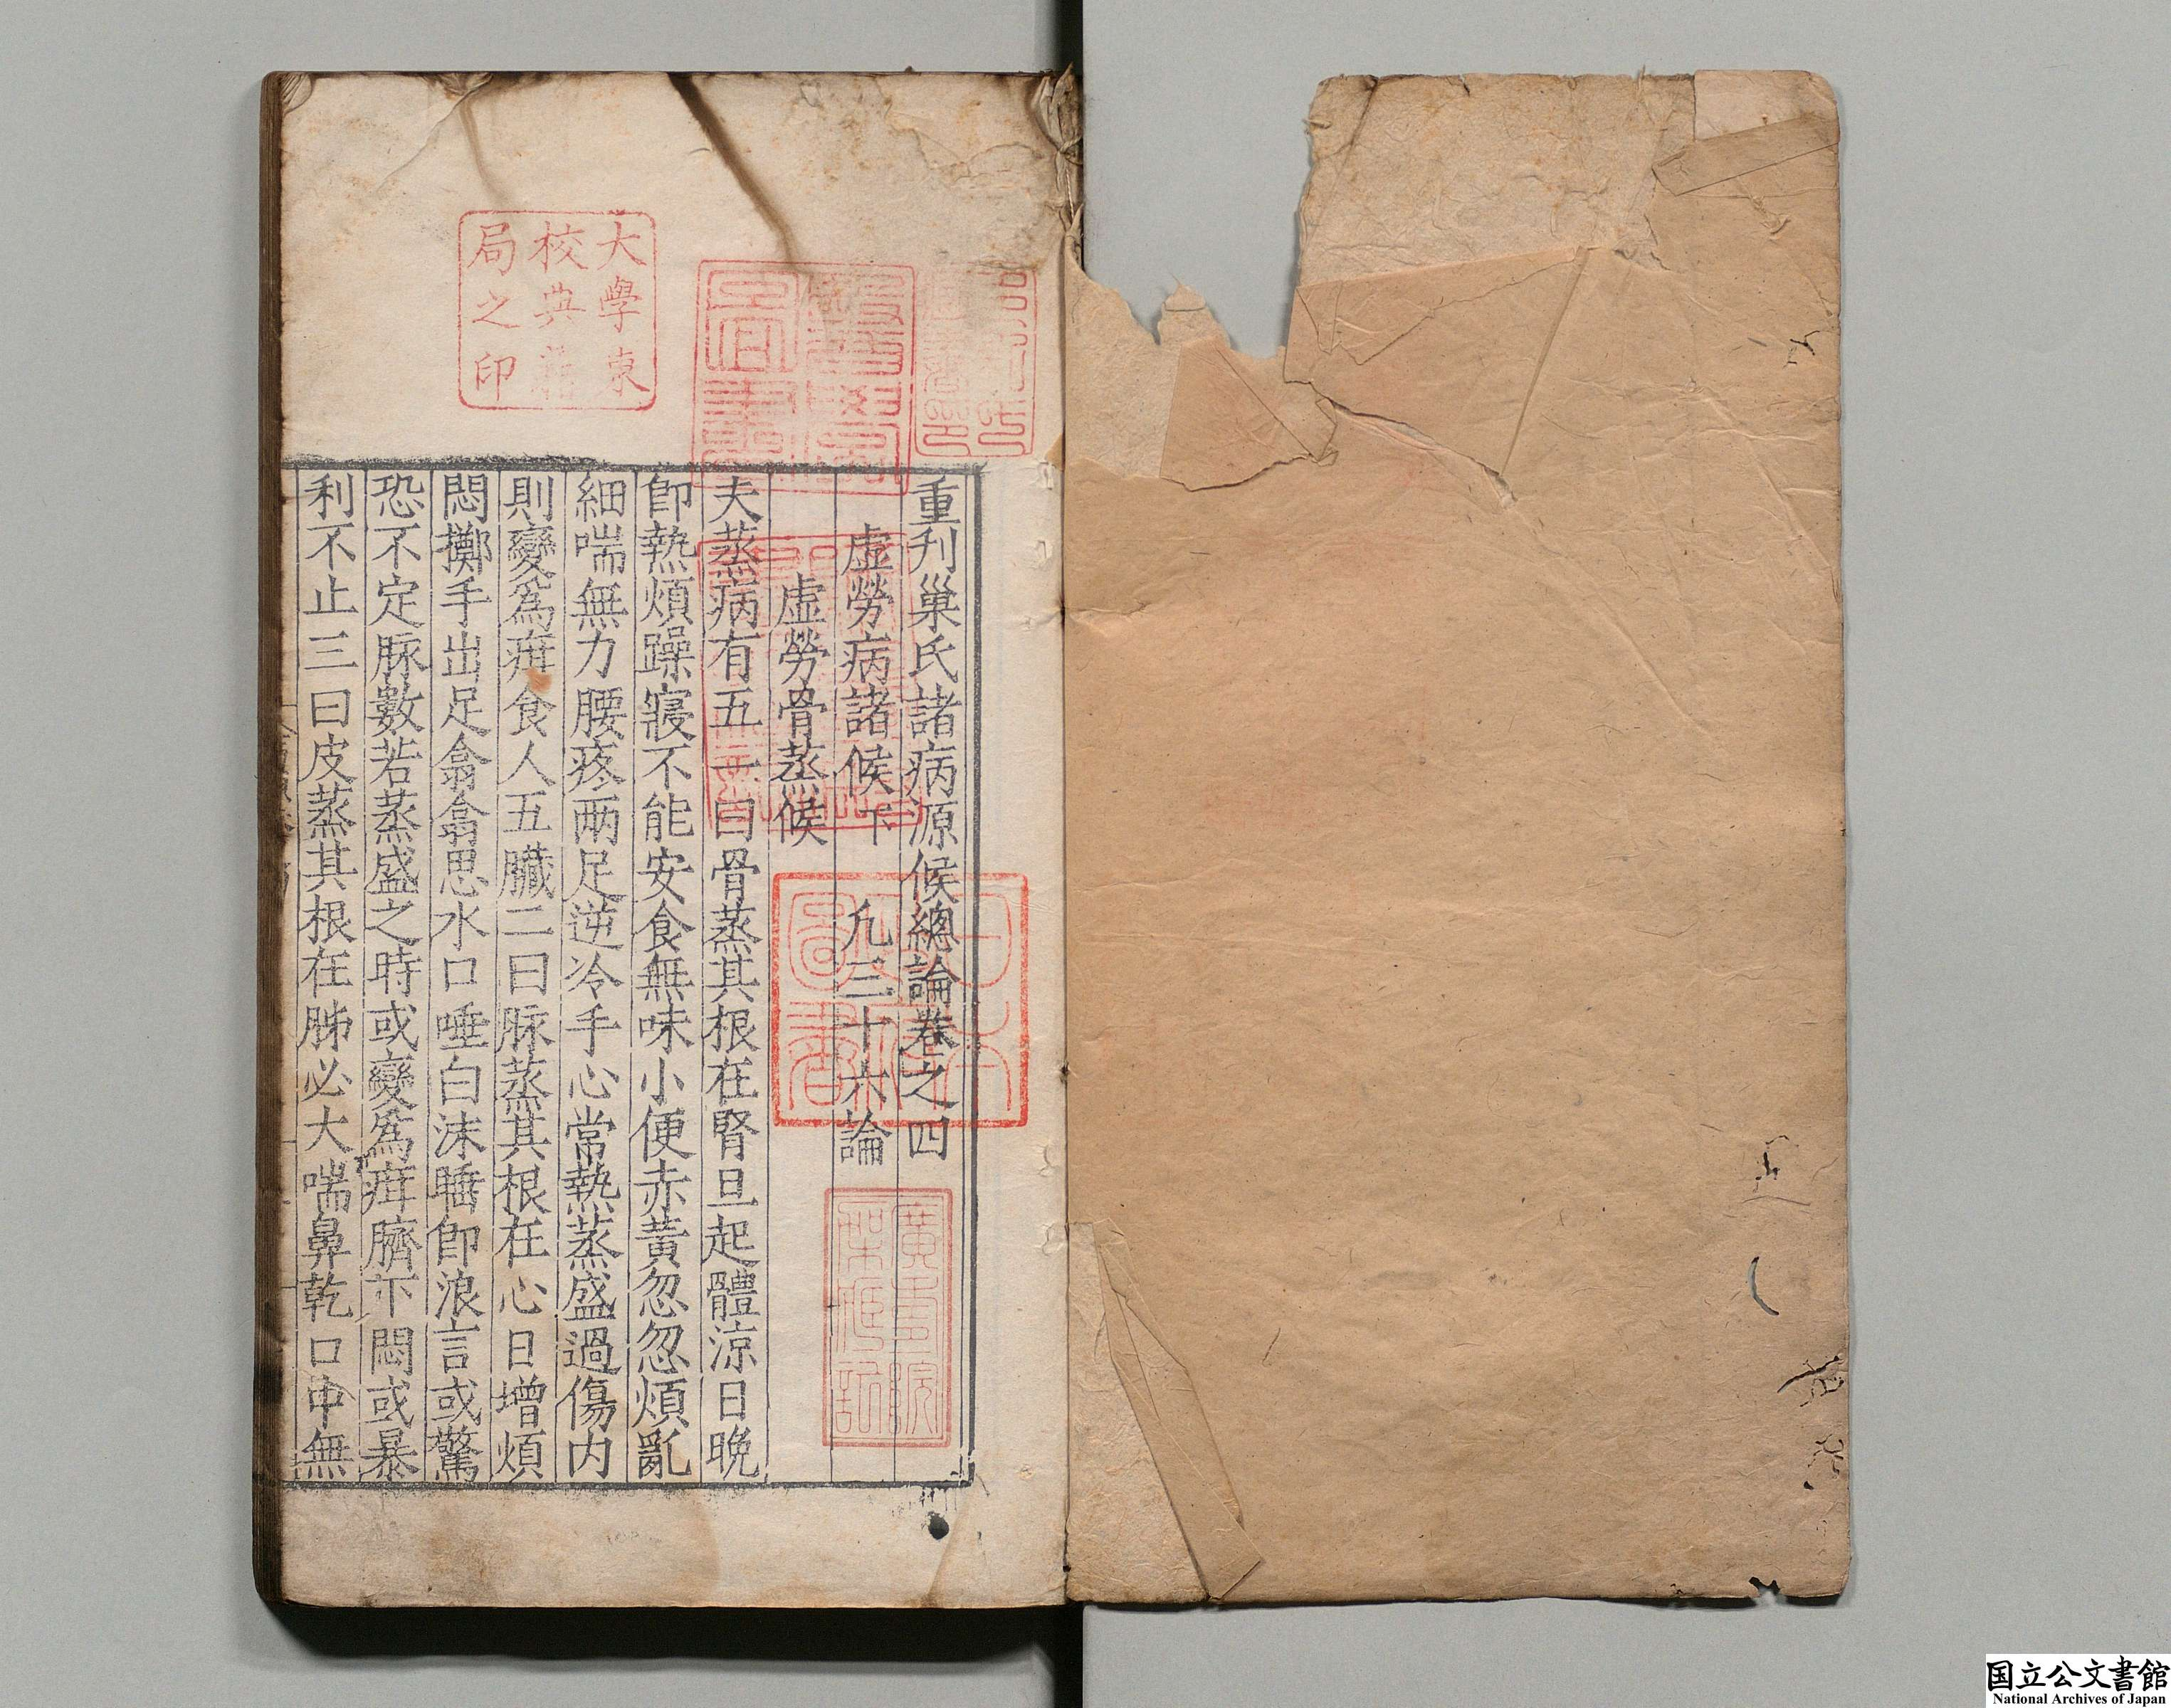 重刋巢氏諸病源候總論卷之四
虛勞病諸候下　凡三十六論
虛勞骨蒸候
夫蒸病有五一曰骨蒸其根在腎旦起體涼日晚
卽熱煩躁寢不能安食無味小便赤黃忽忽煩亂
細喘無力腰疼兩足逆冷手心常熱蒸盛過傷内
則變爲疳食人五臟二曰脉蒸其根在心日增煩
悶擲手出足翕翕思水口唾白沫睡卽浪言或驚
恐不定脉數若蒸盛之時或變爲疳臍下悶或暴
利不止三曰皮蒸其根在肺必大喘鼻乾口中無
大學東
校典籍
局之印
醫學
圖書
日本
政府
圖書
国立公文書館
National Archives of Japan